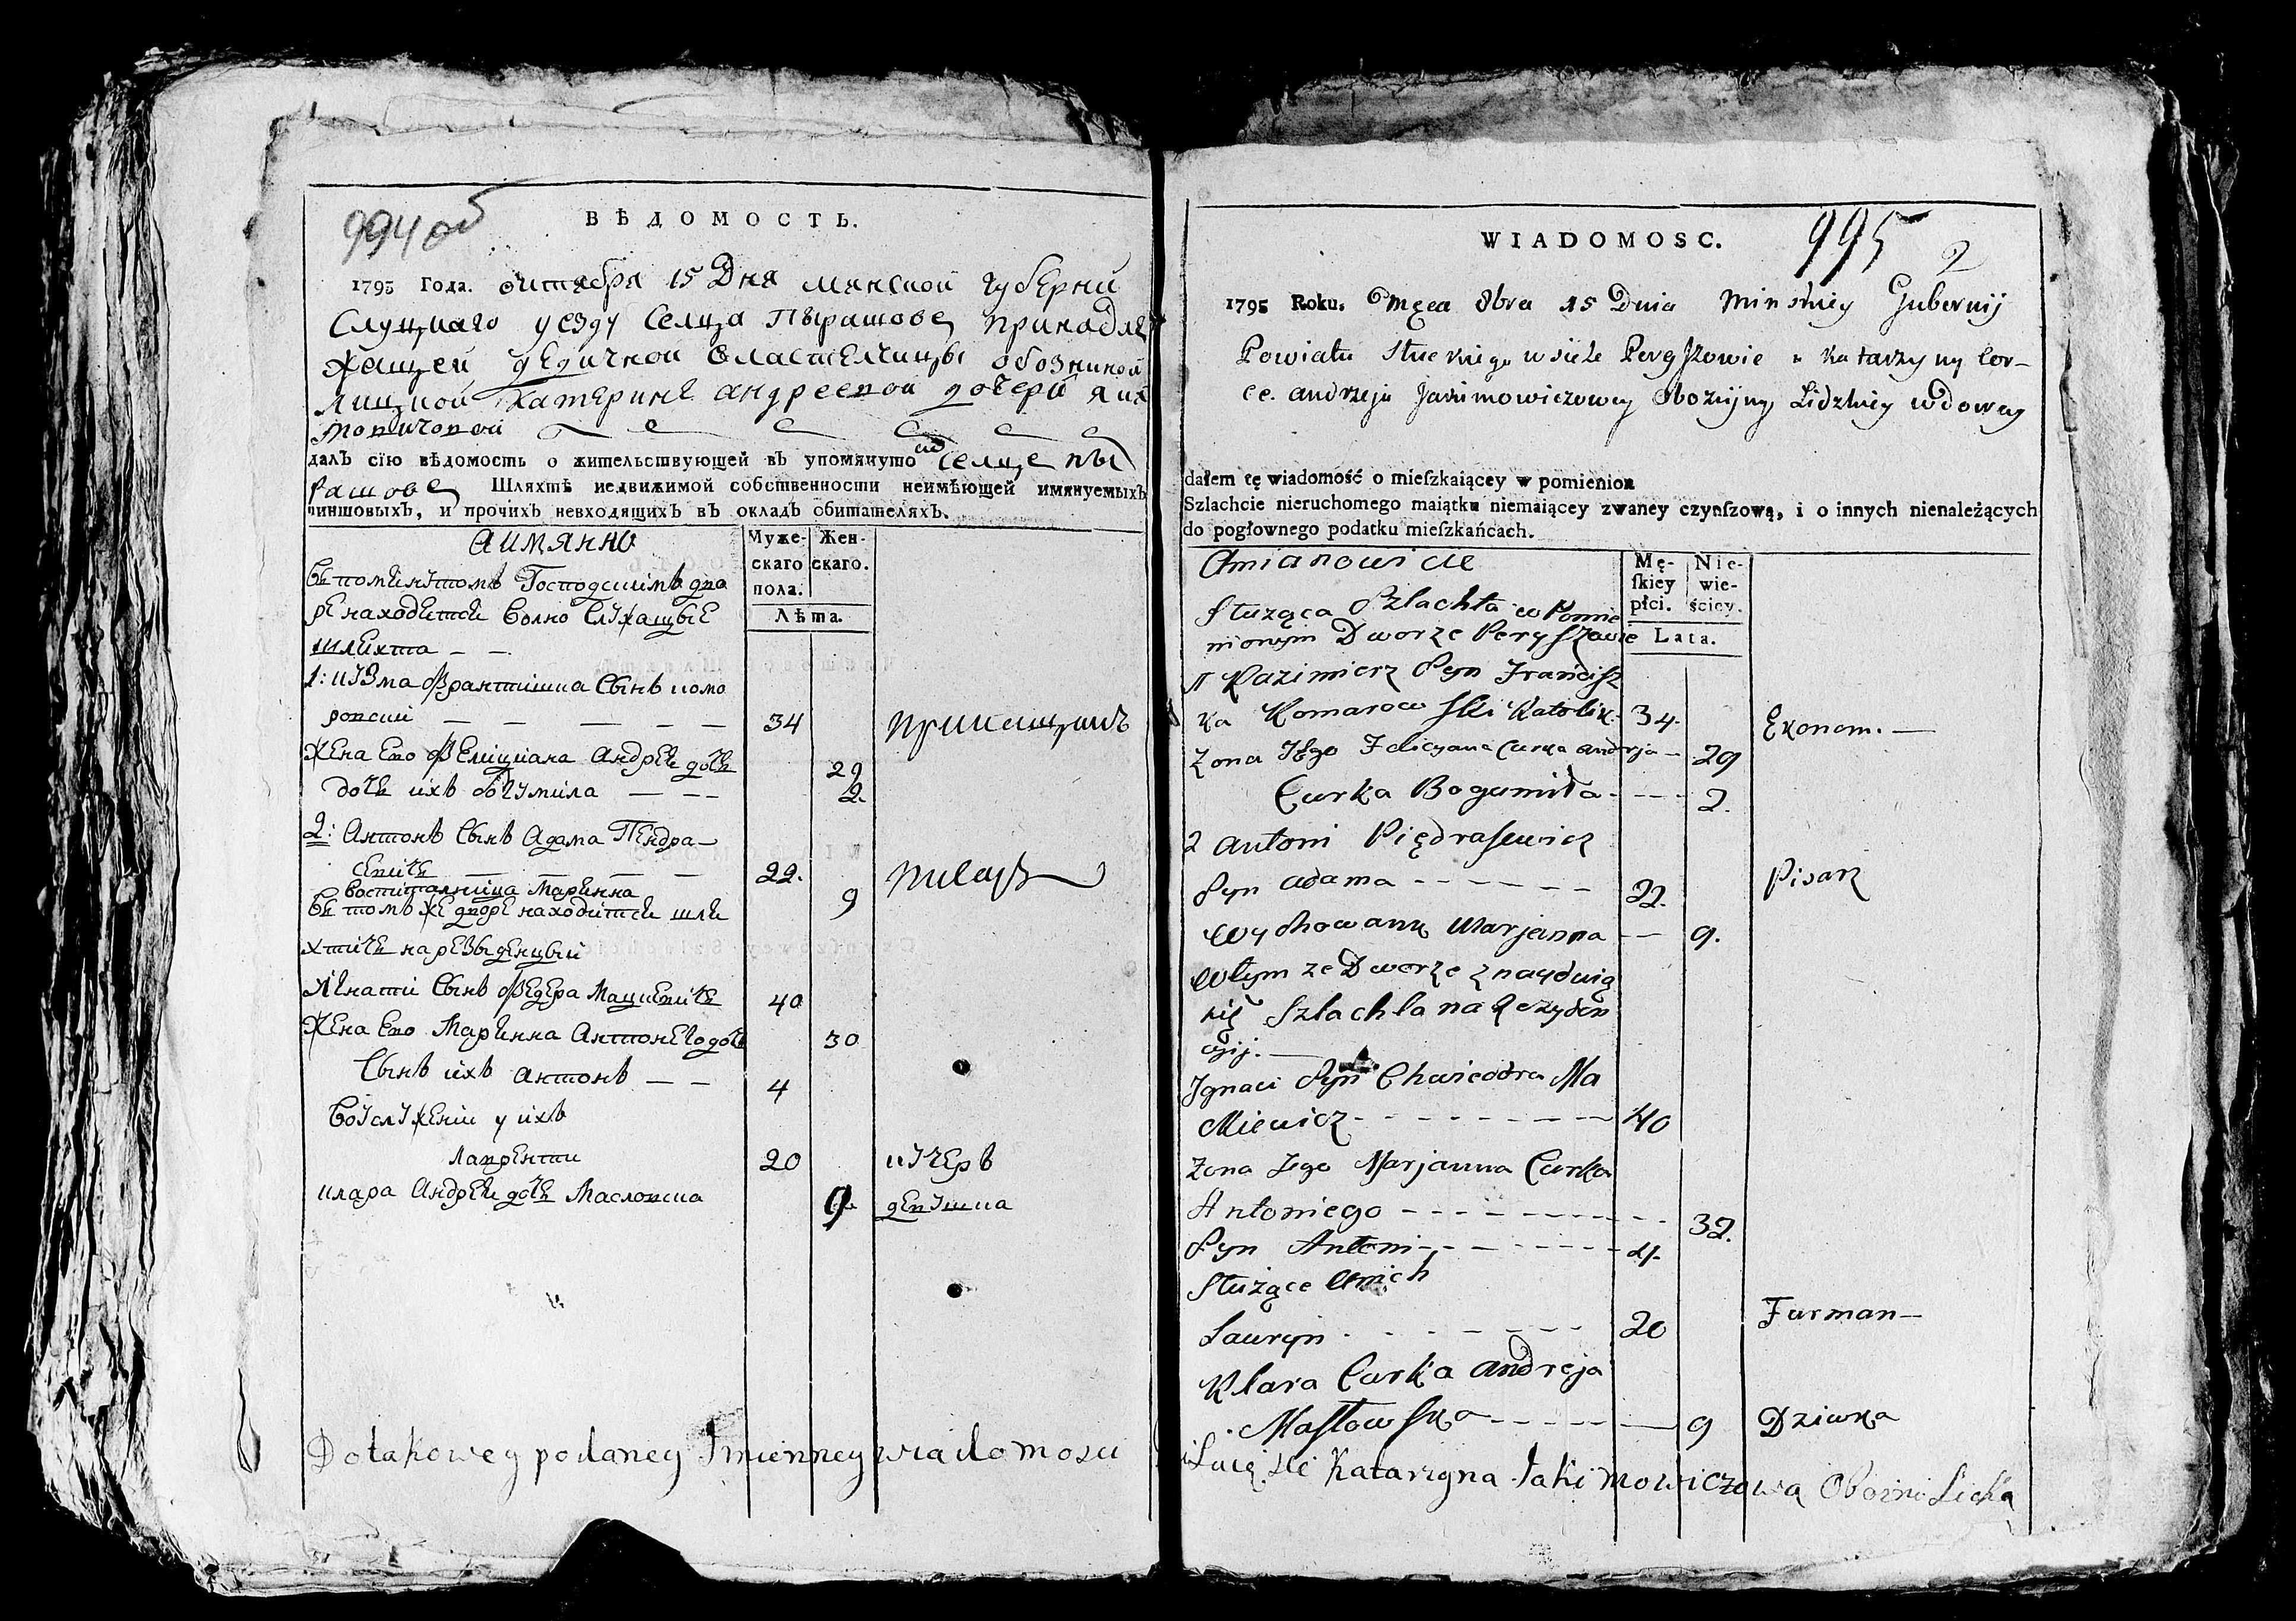 994 об
ВѢДОМОСТЬ.
1795 Года. октября 15 Дня минской губерни
Слуцкаго уезду Селца Пырашова принадле
жащей дедичной властелницы обозниной
лицкой Катерине андреевой дочери яки
мовичовой
далъ сїю вѣдомость о жительствующей въ упомянуто селце пы
рашове Шляхтѣ недвижимой собственности неимѣющей имянуемыхъ
чиншовыхъ, и прочихъ невходящихъ въ окладъ обитателяхъ.
АИМЯННО
Муже-
скаго
пола.
Жен-
скаго.
Лѣта.
въ помянутомъ Господскимъ дво
ре находится волно служащые
шляхта — —
1: кузма франтишка сынъ комо
ровски — — — — — 34 прикащикъ
жена ево фелициана Андрея дочь 29
дочь ихъ богумила — — — 2.
2: Антонъ сынъ Адама Пендра—
севичь — — — — 22. писарь
воспиталница Марянна 9
въ томъ же дворе находится шля
хтичь на резыденцыи
Игнати сынъ федера Мацкевичь 40
жена ево Марянна Антонего дочь 30
сынъ ихъ антонъ — — 4
во услужени у ихъ
лавренти 20 кучеръ
клара Андрея дочь Масловска 9. девушка
Dotakowey podaney Imienney wiadomosci
WIADOMOSC.
995
2
1795 Roku. Męca 8bra 15 Dnia Minskiey Gubernij
Powiatu Słuckiego w siele Peryszowie u Katarzyny Cor—
ce. andrzeja Jakimowiczowey Obozniny Lidzkiey wdowey
dałem tę wiadomość o mieſzkaiącey w pomienion
Szlachcie nieruchomego maiątku niemaiącey zwaney czynſzową, i o innych nienależących
do pogłownego podatku mieſzkańcach.
Amianowicie
Mę-
ſkiey
płci.
Nie-
wie-
ściey.
Lata.
Służąca Szlachta w Pomie
nionym Dworze Peryszowie
1 Kazimierz Syn Francisz
ka Komarowski Katolik. 34. Ekonom. —
Żona Jego Felicyana Curka andrja — 29
Curka Bogumiła - - - - 2.
2 antoni Piędrasewicz
Syn adama - - - - - - 22. Pisarz
Wychowank Marjanna — 9.
Wtym ze Dworze znayduią
się Szlachta na Rezyden
cyij. —
Ignaci Syn Chwieodra Ma
ckiewicz - - - - - - - - 40
Zona Jego Marjanna Curka
Antoniego - - - - - - - - - 32.
Syn Antoni - - - - - - - 4.
Służące Unich
Lauryn - - - - - - - 20 Furman—
Klara Curka andreja
Masłowska - - - - — 9 Dziewka
Katarzyna Jakimowiczowa Obozni Licka